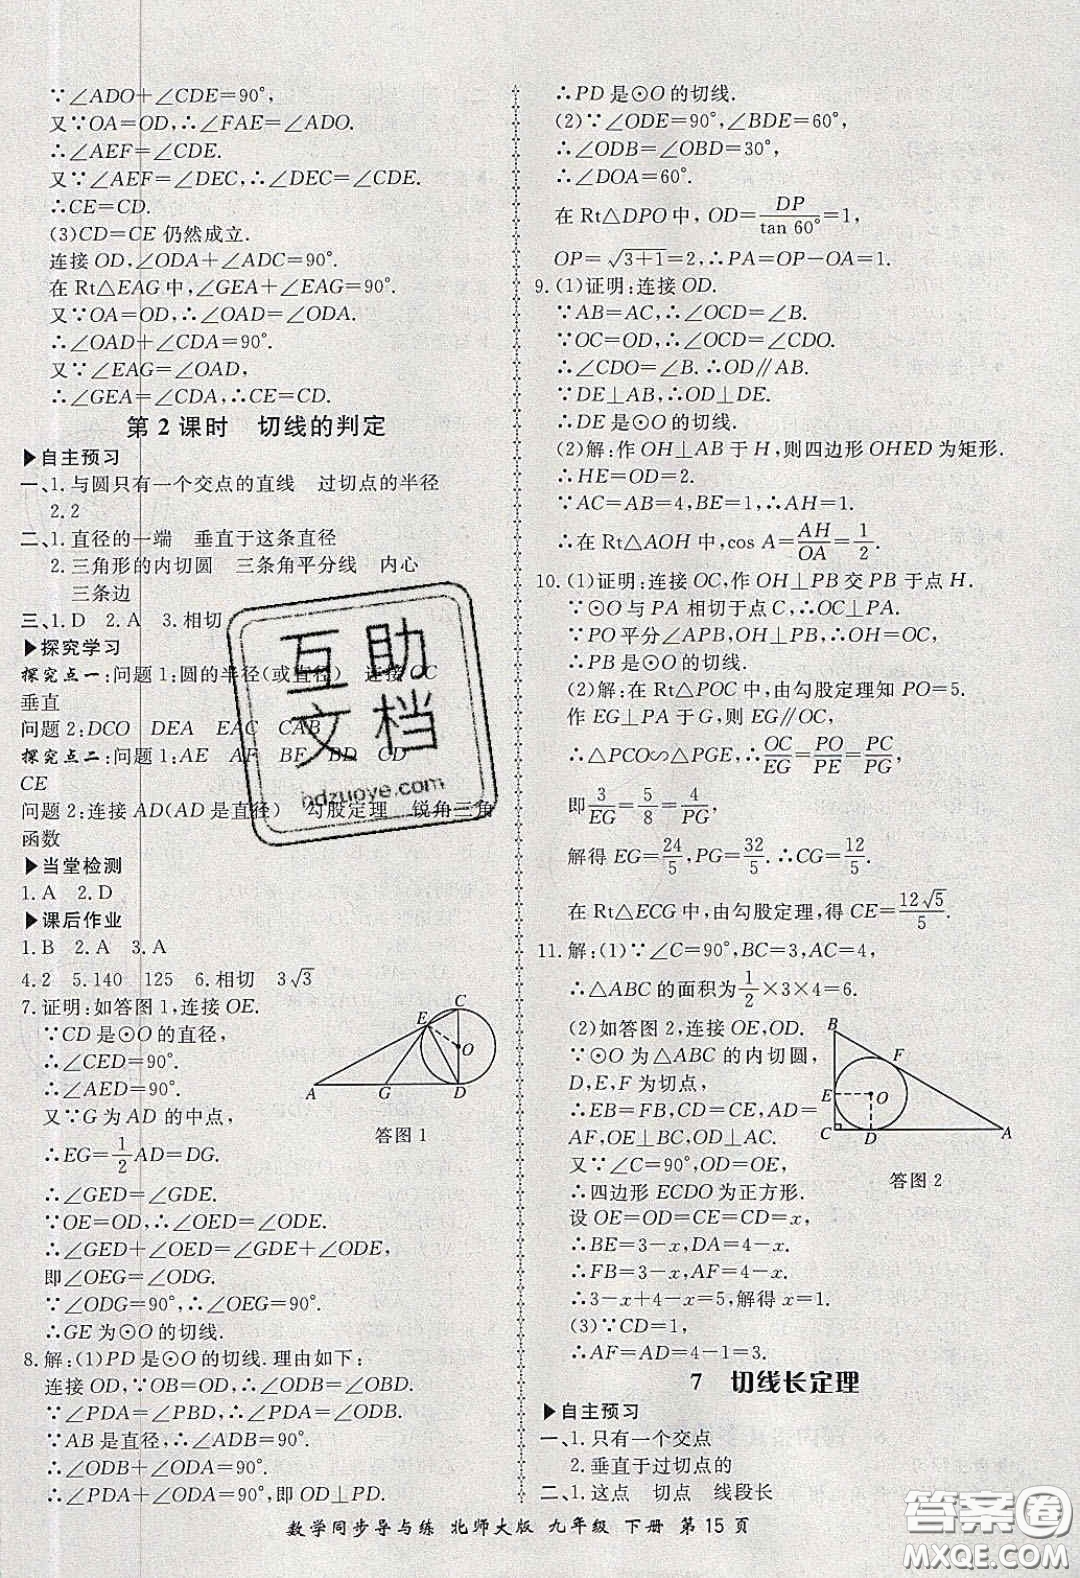 ∵∠ADO+∠CDE=90°,
又∵OA=OD,∴∠FAE=∠ADO.
∴∠AEF=∠CDE.
又∵∠AEF=∠DEC,∴∠DEC=∠CDE.
∴CE=CD.
(3)CD=CE 仍然成立.
连接 OD,∠ODA+∠ADC=90°.
在 Rt△EAG 中,∠GEA+∠EAG=90°.
又∵OA=OD,∴∠OAD=∠ODA.
∴∠OAD+∠CDA=90°.
又∵∠EAG=∠OAD,
∴∠GEA=∠CDA,∴CE=CD.
第 2 课时 切线的判定
▶自主预习
一、1.与圆只有一个交点的直线 过切点的半径
2.2
二、1.直径的一端 垂直于这条直径
2.三角形的内切圆 三条角平分线 内心
三条边
三、1.D 2.A 3.相切
▶探究学习
探究点一:问题 1:圆的半径(或直径) 连接 OC
垂直
问题 2:DCO DEA EAC CAB
探究点二:问题 1:AE AF BF BD CD
CE
问题 2:连接 AD(AD 是直径) 勾股定理 锐角三角
函数
▶当堂检测
1.A 2.D
▶课后作业
1.B 2.A 3.A
4.2 5.140 125 6.相切 3√3
7.证明:如答图 1,连接 OE.
∵CD 是⊙O 的直径,
∴∠CED=90°.
∴∠AED=90°.
又∵G 为 AD 的中点,
∴EG=1/2AD=DG.
∴∠GED=∠GDE.
∵OE=OD,∴∠OED=∠ODE.
∴∠GED+∠OED=∠GDE+∠ODE.
即∠OEG=∠ODG.
∵∠ODG=90°,∴∠OEG=90°.
∴GE 为⊙O 的切线.
C
E
O
A G D
答图 1
8.解:(1)PD 是⊙O 的切线.理由如下:
连接 OD,∵OB=OD,∴∠ODB=∠PBD.
∵∠PDA=∠PBD,∴∠PDA=∠ODB.
∵AB 是直径,∴∠ADB=90°.
∴∠ODB+∠ODA=90°.
∴∠PDA+∠ODA=90°,即 OD⊥PD.
∴PD 是⊙O 的切线.
(2)∵∠ODE=90°,∠BDE=60°,
∴∠ODB=∠OBD=30°,
∴∠DOA=60°.
在 Rt△DPO 中,OD=DP/tan 60°=1,
OP=√3+1=2,∴PA=OP-OA=1.
9.(1)证明:连接 OD.
∵AB=AC,∴∠OCD=∠B.
∵OC=OD,∴∠OCD=∠CDO.
∴∠CDO=∠B.∴OD∥AB.
∵DE⊥AB,∴OD⊥DE.
∴DE 是⊙O 的切线.
(2)解:作 OH⊥AB 于 H,则四边形 OHED 为矩形.
∴HE=OD=2.
∵AC=AB=4,BE=1,∴AH=1.
∴在 Rt△AOH 中,cos A=AH/OA=1/2.
10.(1)证明:连接 OC,作 OH⊥PB 交 PB 于点 H.
∵⊙O 与 PA 相切于点 C,∴OC⊥PA.
∵PO 平分∠APB,OH⊥PB,∴OH=OC.
∴PB 是⊙O 的切线.
(2)解:在 Rt△POC 中,由勾股定理知 PO=5.
作 EG⊥PA 于 G,则 EG∥OC,
∴△PCO∽△PGE,∴OC/EG=PO/PE=PC/PG,
即3/EG=5/8=4/PG,
解得 EG=24/5,PG=32/5.∴CG=12/5.
在 Rt△ECG 中,由勾股定理,得 CE=12√5/5.
11.解:(1)∵∠C=90°,BC=3,AC=4,
∴△ABC 的面积为1/2×3×4=6.
(2)如答图 2,连接 OE,OD.
∵⊙O 为△ABC 的内切圆,
D,E,F 为切点,
∴EB=FB,CD=CE,AD=
AF,OE⊥BC,OD⊥AC.
又∵∠C=90°,OD=OE,
∴四边形 ECDO 为正方形.
设 OE=OD=CE=CD=x,
∴BE=3-x,DA=4-x.
∴FB=3-x,AF=4-x.
∴3-x+4-x=5,解得 x=1.
(3)∵CD=1,
∴AF=AD=4-1=3.
B
F
E O
C D A
答图 2
7 切线长定理
▶自主预习
一、1.只有一个交点
2.垂直于过切点的
二、1.这点 切点 线段长
数学同步导与练 北师大版 九年级 下册 第 15 页
互助
文档
hdzuoye.com
答案圈
MXQE.COM